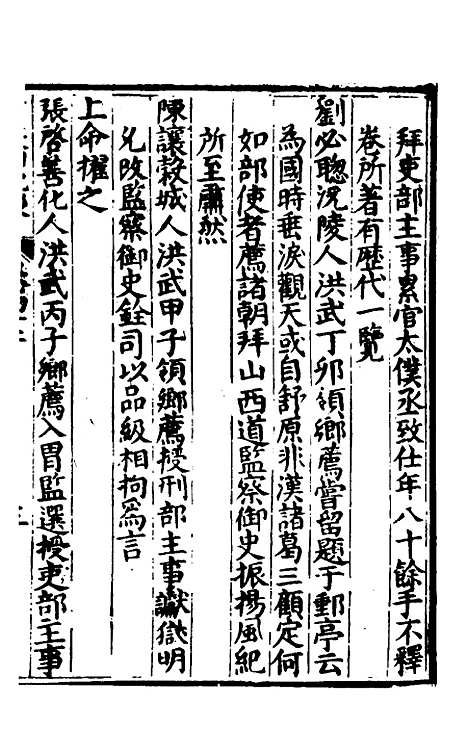 拜吏部主事累官太僕丞致仕年八十餘手不釋
卷所著有歷代一覽
劉必聰沅陵人洪武丁卯領鄉薦嘗留題于郵亭云
為國時垂淚觀天或自舒原非漢諸葛三顧定何
如部使者薦諸朝拜山西道監察御史振揚風紀
所至肅然
陳讓穀城人洪武甲子領鄉薦授刑部主事讞獄明
允改監察御史銓司以品級相拘為言
上命擢之
張啓善化人洪武丙子鄉薦入胄監選授吏部主事